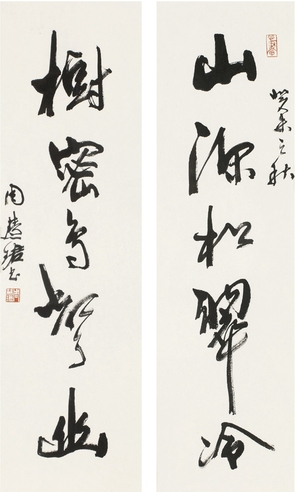 癸未之秋
山深松翠冷
樹密鳥聲幽
周慧珺書